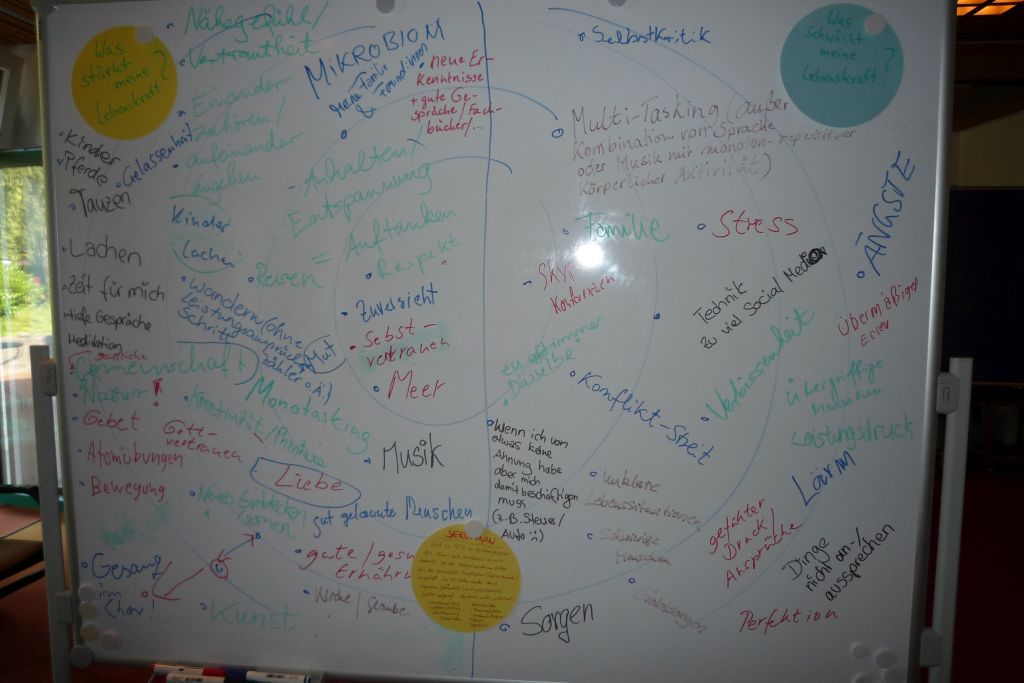 Was
stärkt
meine
Lebenskraft?
Nähegefühle/
Vertrautheit
Einander
zuhören/
aufeinander
eingehen
MIKROBIOM
meine Familie
& Freundinnen
neue Er-
kenntnisse
+ gute Ge-
spräche/Fach-
bücher/...
Kinder
Pferde
Gelassenheit
Tanzen
Kinder
Lachen
Lachen
Zeit für mich
tiefe Gespräche
Meditation
Anhalten/
Entspannung
= Auftanken
Respekt
Reisen
Wandern (ohne
Leistungsanspruch
Schritt-
zähler o.Ä.)
Mut
Zuversicht
Selbst-
vertrauen
Meer
Gemeinschaft
Natur!
Monotasking
Kreativität/Phantasie
Gebet
Gott-
vertrauen
Atemübungen
Bewegung
Musik
Liebe
Neues Entdecken
Lernen
gut gelaunte Menschen
Gesang
im
Chor!
gute/gesu
Ernähru
Kirche/Glaube
Kunst
SEROTONIN
Was
schwächt
meine
Lebenskraft?
Selbstkritik
Multi-Tasking (außer
Kombination von Sprache
oder Musik mit monoton-repetitiver
körperlicher Aktivität)
Familie
Stress
ÄNGSTE
Skype
Konferenzen
Technik
zu viel Social Media
übermäßiges
Essen
zu oft immer
Dasselbe
Konflikt-Streit
Verbissenheit
übergriffige
Menschen
Leistungsdruck
Wenn ich von
etwas keine
Ahnung habe
aber mich
damit beschäftigen
muss
(z.B. Steuer/
Auto
unklare
Lebenssituationen
Schwierige
Menschen
Lärm
gefühlter
Druck/
Ansprüche
Dinge
nicht an-/
aussprechen
Sorgen
Perfektion